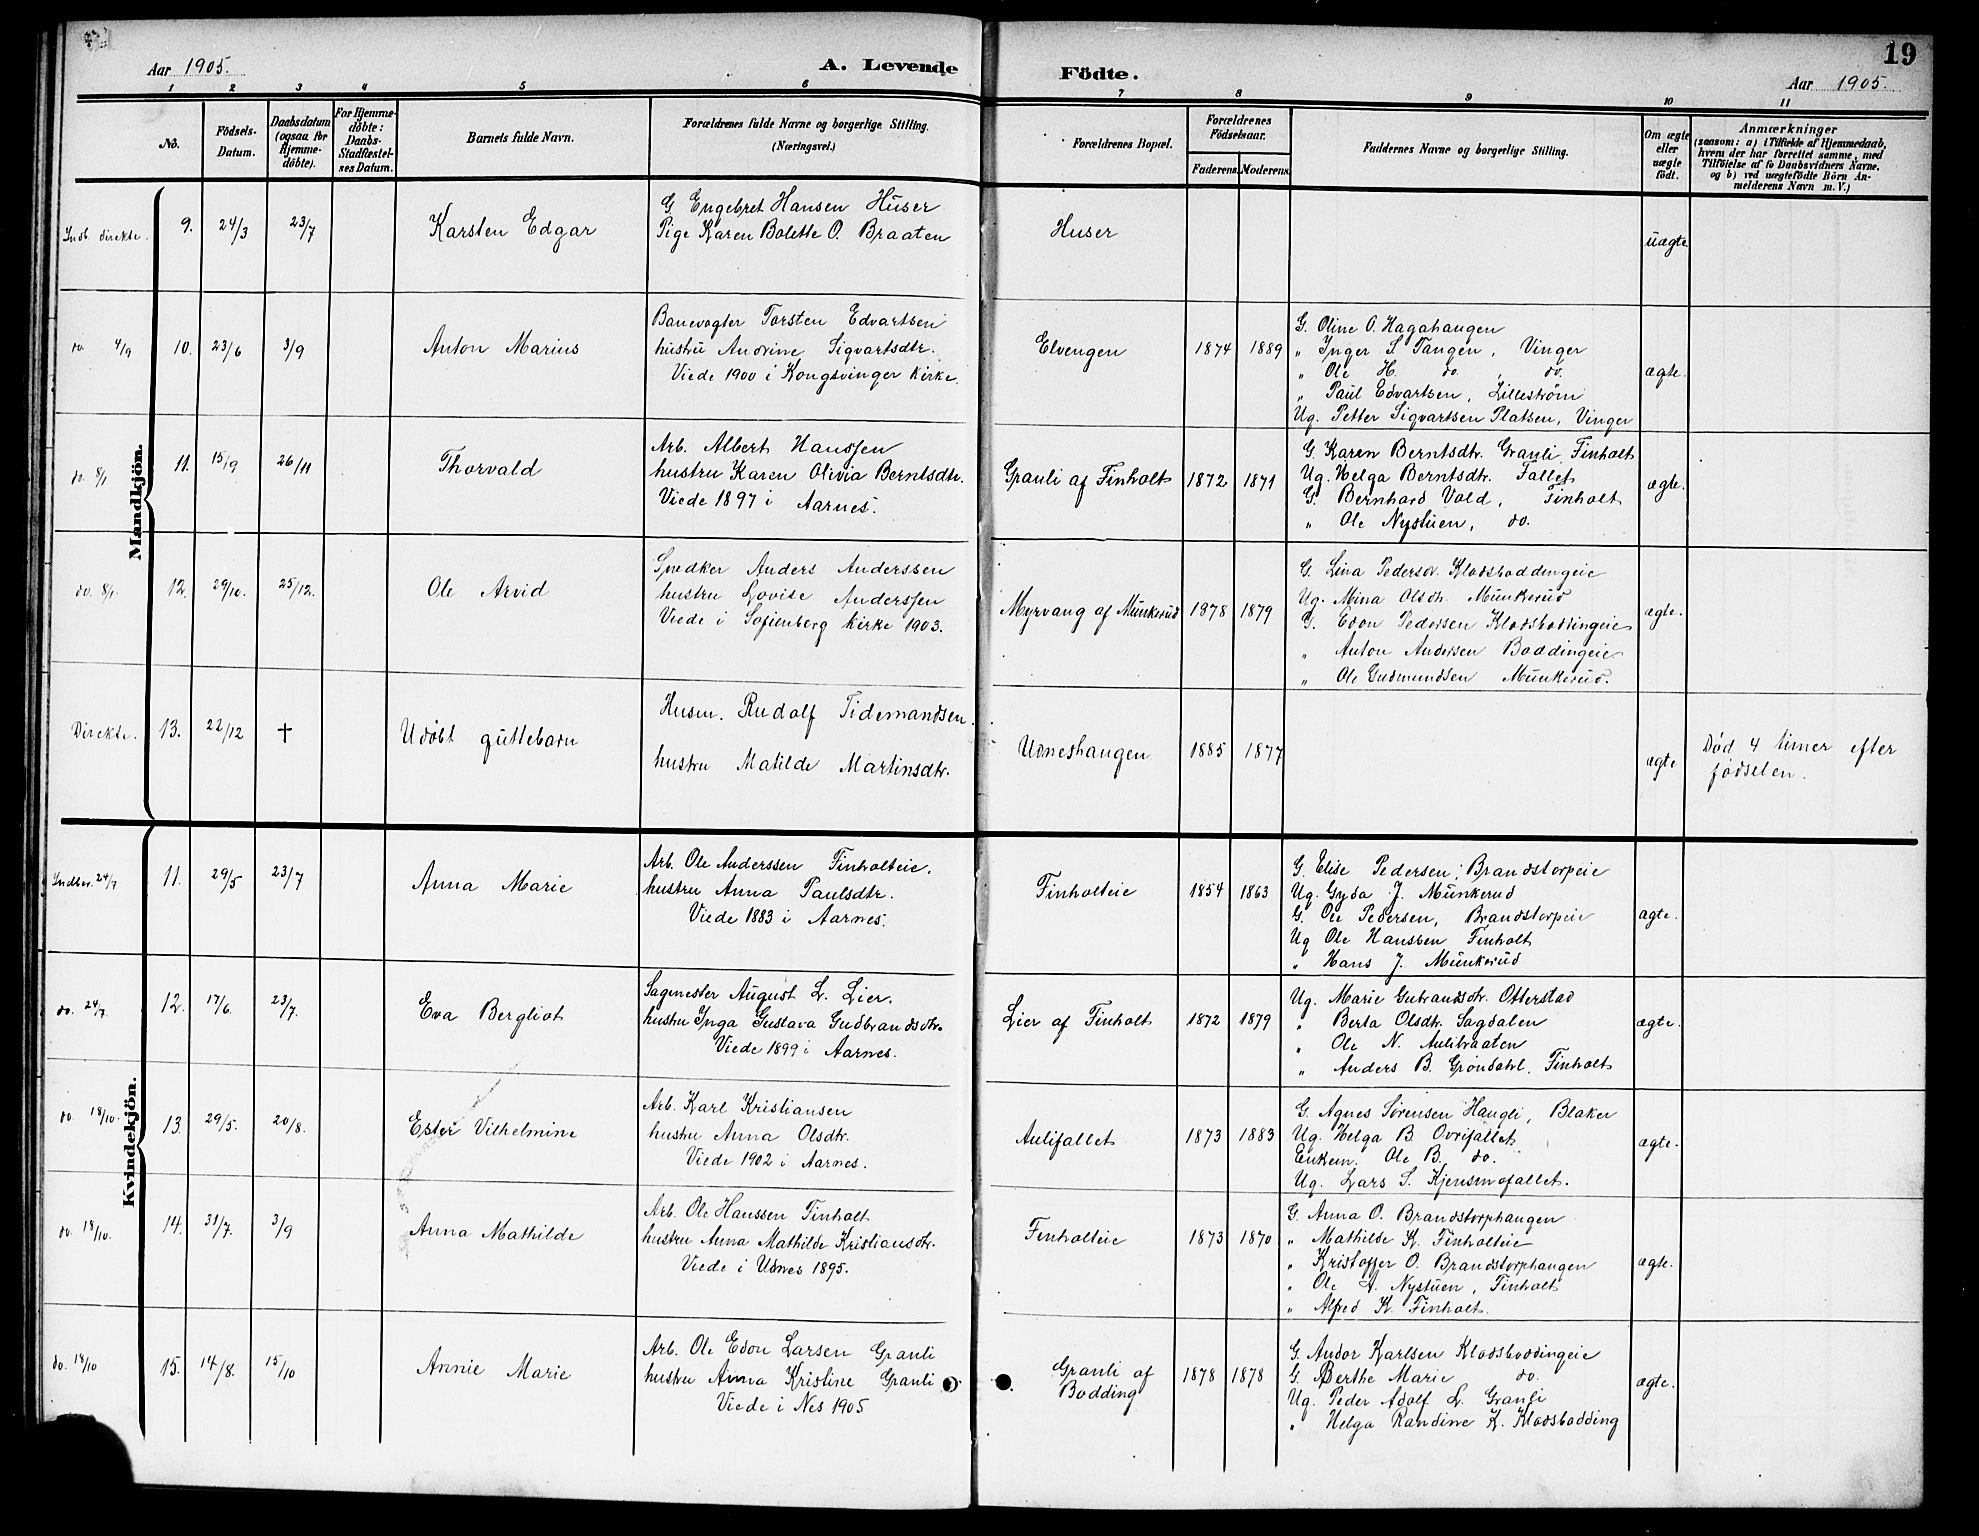 19
Aar 1905.
A. Levende
Födte.
Aar 1905.
1 2 3 4 5 6 7 8 9 10 11
No.
Födsels-
Datum.
Daabsdatum
(ogsaa for
Hjemme-
döbte).
For Hjemme-
döbte:
Daabs-
Stadfæstel-
ses Datum.
Barnets fulde Navn.
Forældrenes fulde Navne og borgerlige Stilling.
(Næringsvei.)
Forældrenes Bopæl.
Forældrenes
Födselsaar.
Faderens. Moderens.
Faddernes Navne og borgerlige Stilling.
Om ægte
eller
uægte
födt.
Anmærkninger
(saasom: a) i Tilfælde af Hjemmedaab,
hvem der har forrettet samme, med
Tilföielse af to Daabsvidners Navne,
og b) ved uægtefödte Börn An-
melderens Navn m. V.)
Mandkjön.
Indb. direkte. 9. 24/3 23/7 Karsten Edgar
G. Engebret Hansen Huser
Pige Karen Bolette O. Braaten
Huser
uægte
do. 4/9 10. 23/6 3/9 Anton Marius
Banevogter Torsten Edvartsen
hustru Andrine Sigvartsdtr.
Viede 1900 i Kongsvinger kirke.
Elvengen 1874 1889
G. Oline O. Hagahaugen
" Inger S. Tangen, Vinger
" Ole H. do. , do.
" Paul Edvartsen, Lillestrøm
Ug. Petter Sigvartsen Platsen, Vinger
ægte.
do. 8/1 11. 15/9 26/11 Thorvald
Arb. Albert Hanssen
hustru Karen Olivia Berntsdtr.
Viede 1897 i Aarnes.
Granli af Finholt 1872 1871
G. Karen Berntsdtr. Granli, Finholt
Ug. Helga Berntsdtr. Fallet
G. Bernhard Vold, Finholt
" Ole Nystuen, do.
ægte.
do. 8/1 12. 29/10. 25/12. Ole Arvid
Snedker Anders Anderssen
hustru Lovise Anderssen
Viede i Sofienberg kirke 1903.
Myrvang af Munkerud 1878 1879
G. Lina Pedersdr. Klodsboddingeie
Ug. Mina Olsdtr. Munkerud
G. Edon Pedersen Klodsboddingeie
" Anton Andersen Boddingeie
" Ole Gudmundsen Munkerud.
ægte.
Direkte. 13. 22/12 † Udöbt guttebarn
Husm. Rudolf Tidemandsen.
hustru Matilde Martinsdtr.
Udneshaugen 1885 1877
ægte
Död 4 timer efter
födselen.
Kvindekjön.
Indber. 24/7 11. 29/5 23/7 Anna Marie
Arb. Ole Anderssen Finholteie.
hustru Anna Paulsdtr.
Viede 1883 i Aarnes.
Finholteie 1854 1863
G. Elise Pedersen, Brandstorpeie
Ug. Gyda J. Munkerud
G. Ole Pedersen, Brandstorpeie
Ug Ole Hanssen Finholt
" Hans J. Munkerud
ægte.
do. 24/7 12. 17/6. 23/7. Eva Bergliot
Sagmester August L. Lier.
hustru Inga Gustava Gudbrandsdtr.
Viede 1899 i Aarnes.
Lier af Finholt 1872 1879
Ug. Marie Gubrandsdtr. Otterstad
" Berta Olsdtr. Sagdalen
" Ole N. Aulibraaten
" Anders B. Grøndahl, Finholt
ægte.
do. 18/10. 13. 29/5. 20/8. Ester Vilhelmine
Arb. Karl Kristiansen
hustru Anna Olsdtr.
Viede 1902 i Aarnes.
Aulifallet 1873 1883
G. Agnes Sørensen Haugli, Blaker
Ug. Helga B. Ovrifallet
Enkem. Ole B. do.
Ug. Lars S. Kjensmofallet.
ægte.
do. 18/10. 14. 31/7. 3/9 Anna Mathilde
Arb. Ole Hanssen Finholt
hustru Anna Mathilde Kristiansdtr.
Viede i Udnes 1895.
Finholteie 1873 1870
G. Anna O. Brandstorphaugen
" Mathilde K. Finholteie
" Kristoffer O. Brandstorphaugen
" Ole A. Nystuen, Finholt
" Alfred K. Finholt.
ægte.
do. 18/10 15. 14/8. 15/10 Annie Marie
Arb. Ole Edon Larsen Granli
hustru Anna Kristine Granli
Viede i Nes 1905
Granli af
Bodding
1878 1878
G. Andor Karlsen Klodsboddingeie
G. Berthe Marie do.
Ug. Peder Adolf L. Granli
" Helga Randine K. Klodsbodding
ægte.